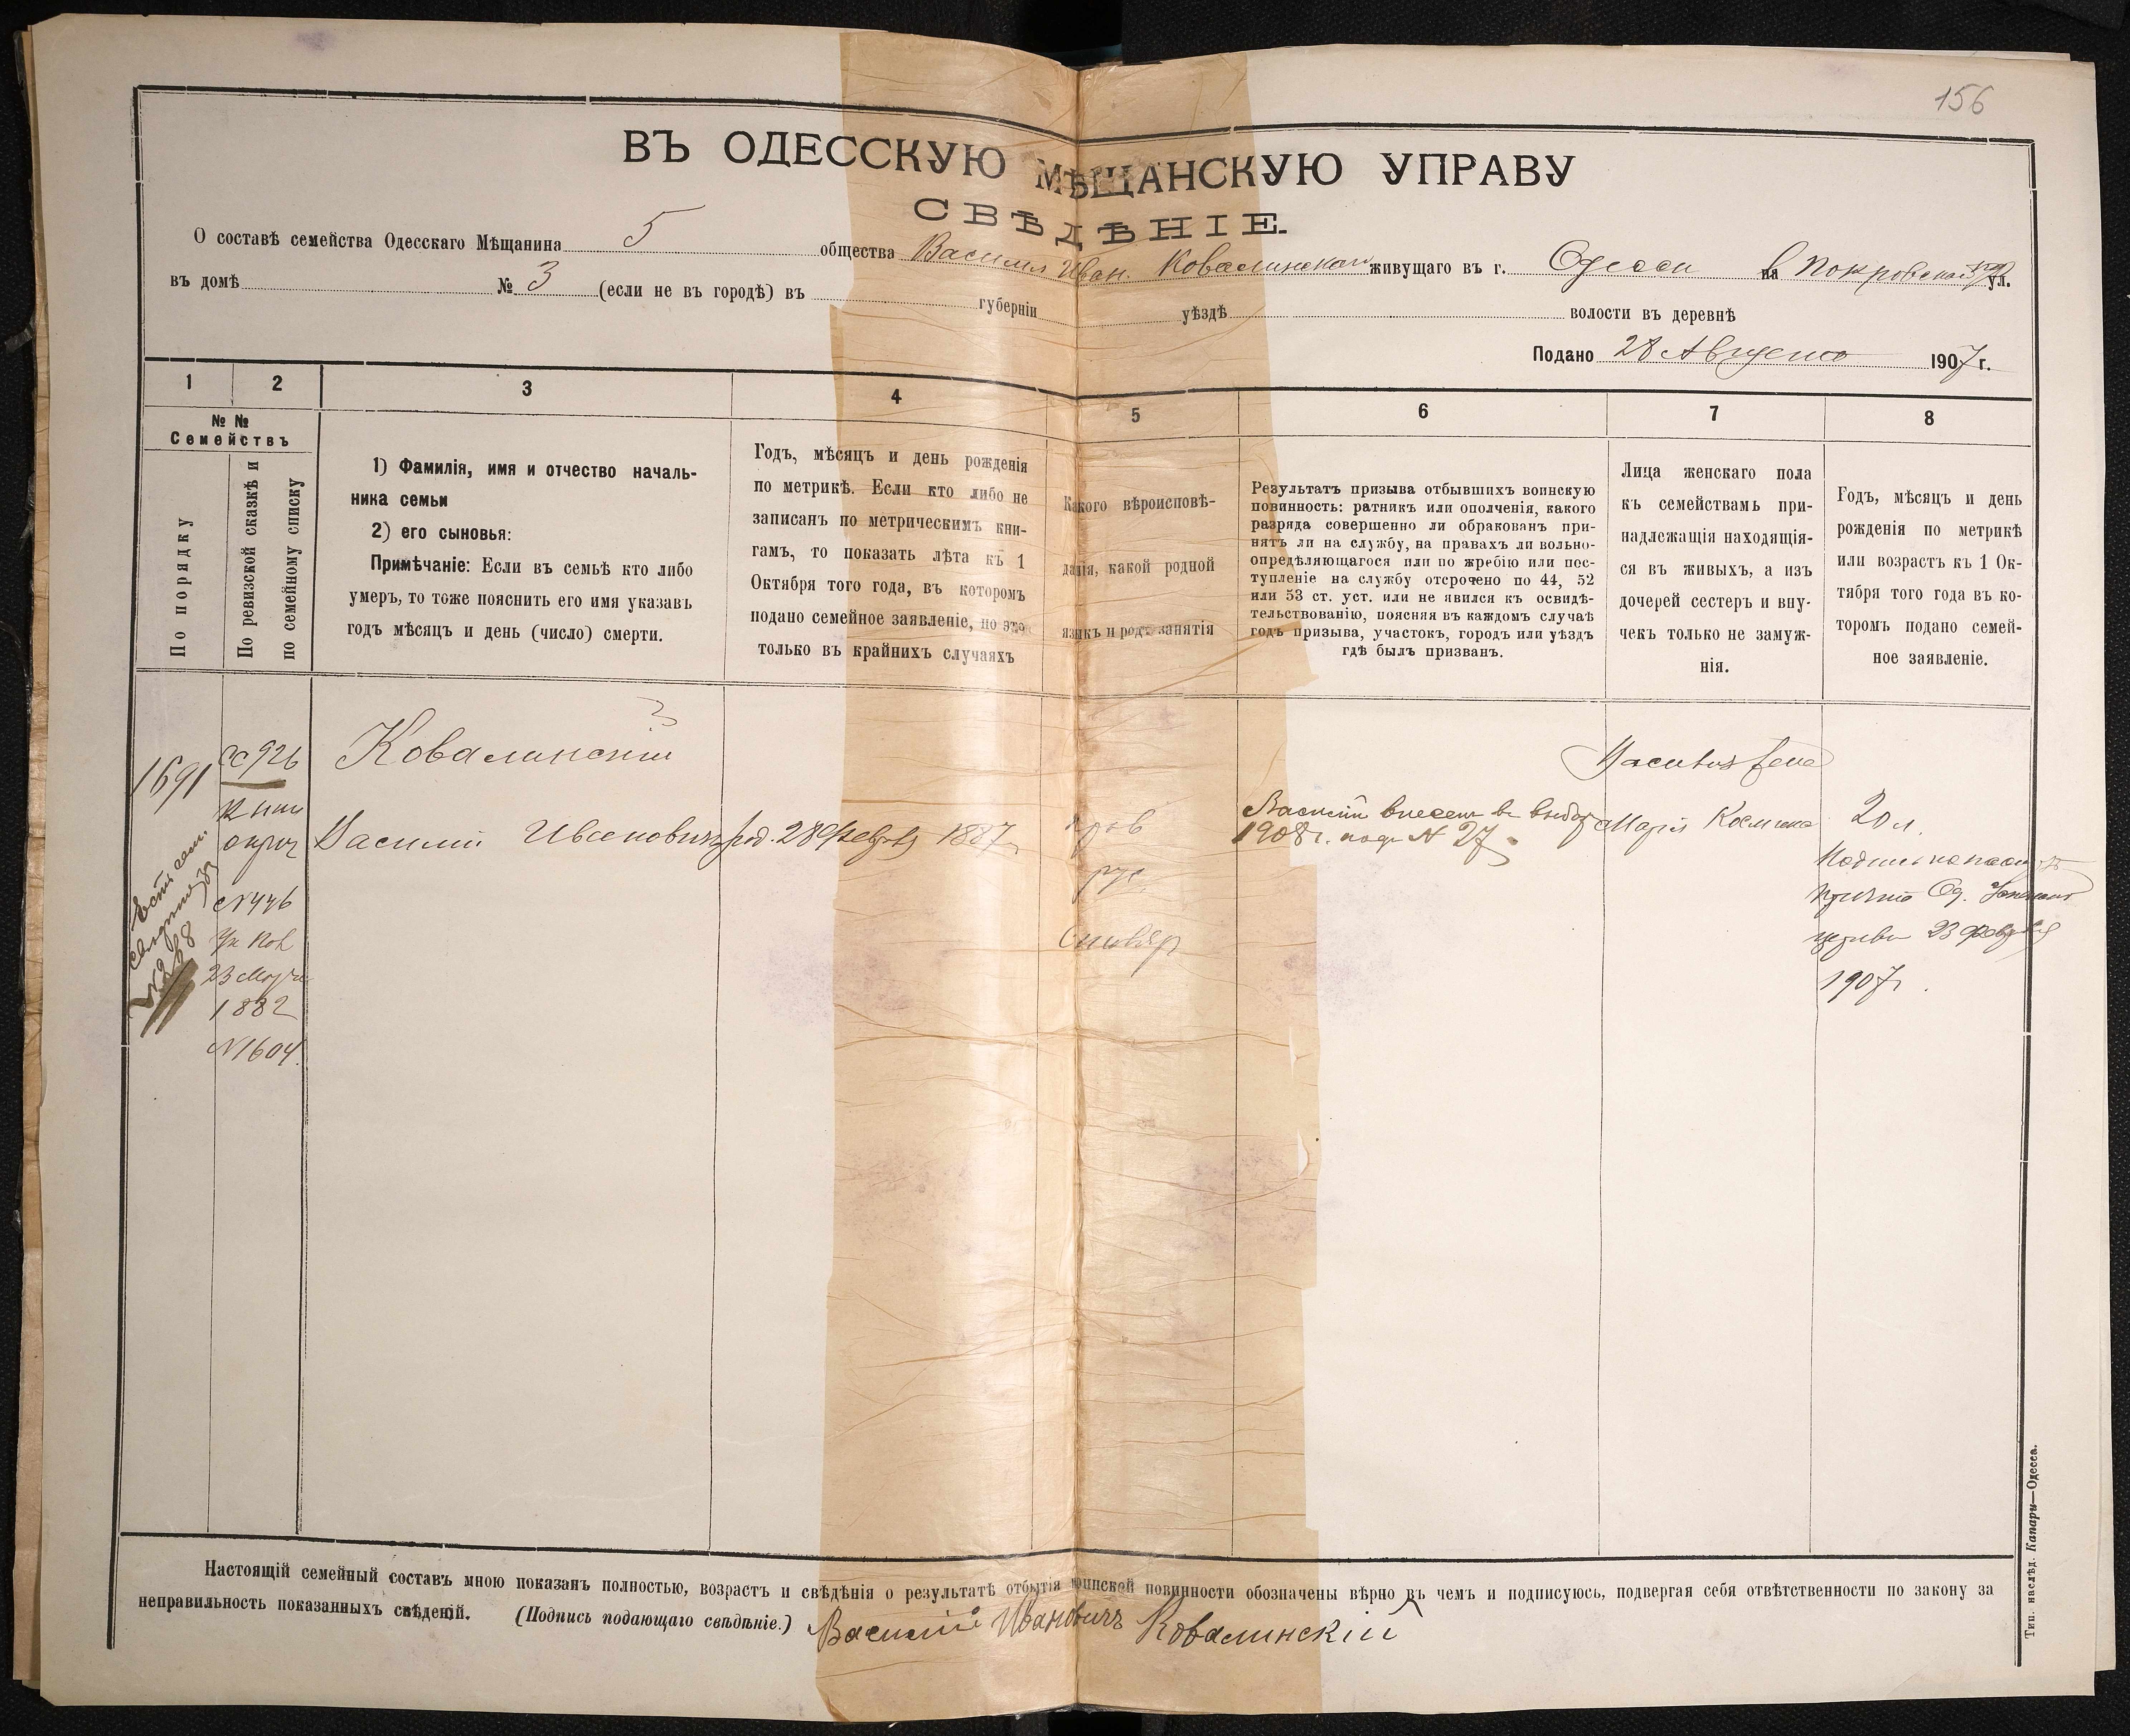 156
ВЪ ОДЕССКУЮ МѢЩАНСКУЮ УПРАВУ
СВѢДѢНІЕ.
О составѣ семейства Одесскаго Мѣщанина 5 общества Василия Иван. Ковалинскаго живущаго въ г. Одессѣ на Покровской ул.
въ домѣ № 3 (если не въ городѣ) въ губерніи уѣздѣ волости въ деревнѣ
Подано 28 Августа 1907 г.
1 2 3 4 5 6 7 8
№ №
Семействъ
По порядку
По ревизской сказкѣ и
по семейному списку
1) Фамилія, имя и отчество началь-
ника семьи
2) его сыновья:
Примѣчаніе: Если въ семьѣ кто либо
умеръ, то тоже пояснить его имя указавъ
годъ мѣсяцъ и день (число) смерти.
Годъ, мѣсяцъ и день рожденія
по метрикѣ. Если кто либо не
записанъ по метрическимъ кни-
гамъ, то показать лѣта къ 1
Октября того года, въ которомъ
подано семейное заявленіе, но это
только въ крайнихъ случаяхъ
Какого вѣроисповѣ-
данія, какой родной
языкъ и родъ занятія
Результатъ призыва отбывшихъ воинскую
повинность: ратникъ или ополченія, какого
разряда совершенно ли обракованъ при-
нятъ ли на службу, на правахъ ли вольно-
опредѣляющагося или по жребію или пос-
тупленіе на службу отсрочено по 44, 52
или 53 ст. уст. или не явился къ освидѣ-
тельствованію, поясняя въ каждомъ случаѣ
годъ призыва, участокъ, городъ или уѣздъ
гдѣ былъ призванъ.
Лица женскаго пола
къ семействамъ при-
надлежащія находящія-
ся въ живыхъ, а изъ
дочерей сестеръ и вну-
чекъ только не замуж-
нія.
Годъ, мѣсяцъ и день
рожденія по метрикѣ
или возрастъ къ 1 Ок-
тября того года въ ко-
торомъ подано семей-
ное заявленіе.
1691
926
Ковалинскій
Василія жена
Василій Ивановичъ род. 28 Февраля 1887 г.
прав
рус
столяр
Василій внесен в выбор
1908 г. под № 27
Марія Космина
20 л.
№ 446
23 Марта
1882
№ 1604.
Есть сем.
Од. Успенской
церкви 23 Февраля
1907 г.
Настоящій семейный составъ мною показанъ полностью, возрастъ и свѣдѣнія о результатѣ отбытія воинской повинности обозначены вѣрно въ чемъ и подписуюсь, подвергая себя отвѣтственности по закону за
неправильность показанныхъ свѣденій. (Подпись подающаго свѣдѣніе.) Василій Ивановичъ Ковалинскій
Тип. наслѣд. Капари—Одесса.